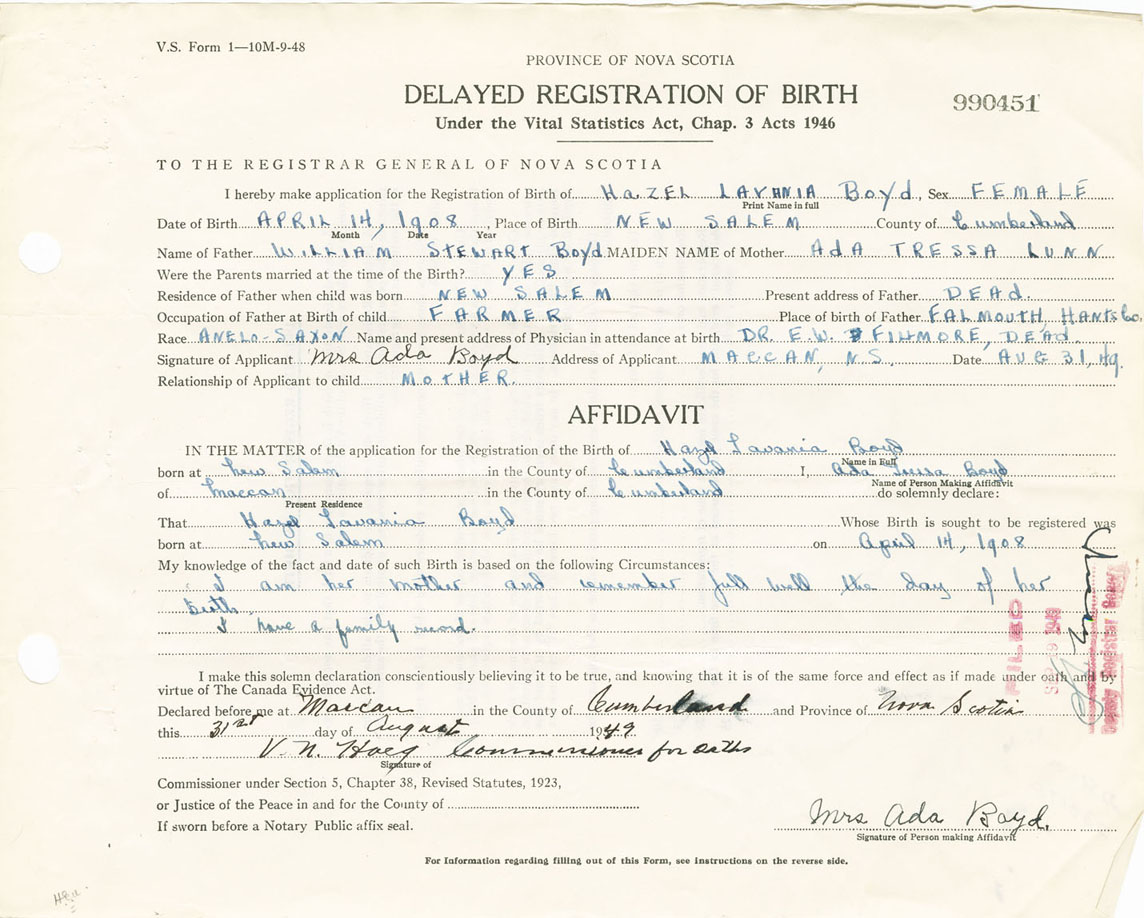 V.S. Form 1—10M-9-48
PROVINCE OF NOVA SCOTIA
DELAYED REGISTRATION OF BIRTH
990451
Under the Vital Statistics Act, Chap. 3 Acts 1946
TO THE REGISTRAR GENERAL OF NOVA SCOTIA
I hereby make application for the Registration of Birth of HaZEL LAVANIA Boyd, Sex FEMALE
Print Name in full
Date of Birth APRIL 14, 1908, Place of Birth NEW SALEM County of Cumberland
Month Date Year
Name of Father WILLIAM STEWART Boyd MAIDEN NAME of Mother AdA TRESSA LUNN
Were the Parents married at the time of the Birth? YES
Residence of Father when child was born NEW SALEM Present address of Father DEAd.
Occupation of Father at Birth of child FARMER Place of birth of Father FALMOUTH, HANTS Co.
Race ANGLO-SAXON Name and present address of Physician in attendance at birth DR. E.W. FILLMORE, DEAD
Signature of Applicant Mrs Ada Boyd Address of Applicant MACCAN, N.S. Date AUG 31, 49.
Relationship of Applicant to child MOTHER.
AFFIDAVIT
IN THE MATTER of the application for the Registration of the Birth of Hazel Lavania Boyd
Name in Full
born at New Salem in the County of Cumberland I, Ada Tressa Boyd
Name of Person Making Affidavit
of Maccan in the County of Cumberland do solemnly declare:
Present Residence
That Hazel Lavania Boyd Whose Birth is sought to be registered was
born at New Salem on April 14, 1908
My knowledge of the fact and date of such Birth is based on the following Circumstances:
I am her mother and remember full well the day of her
birth.
I have a family record.
I make this solemn declaration conscientiously believing it to be true, and knowing that it is of the same force and effect as if made under oath and by
virtue of The Canada Evidence Act.
Declared before me at Maccan in the County of Cumberland and Province of Nova Scotia
this 31st day of August 1949
V. N. Hoeg Commissioner for oaths
Signature of
Commissioner under Section 5, Chapter 38, Revised Statutes, 1923,
or Justice of the Peace in and for the County of
If sworn before a Notary Public affix seal.
Mrs Ada Boyd.
Signature of Person making Affidavit
For Information regarding filling out of this Form, see instructions on the reverse side.
FILED